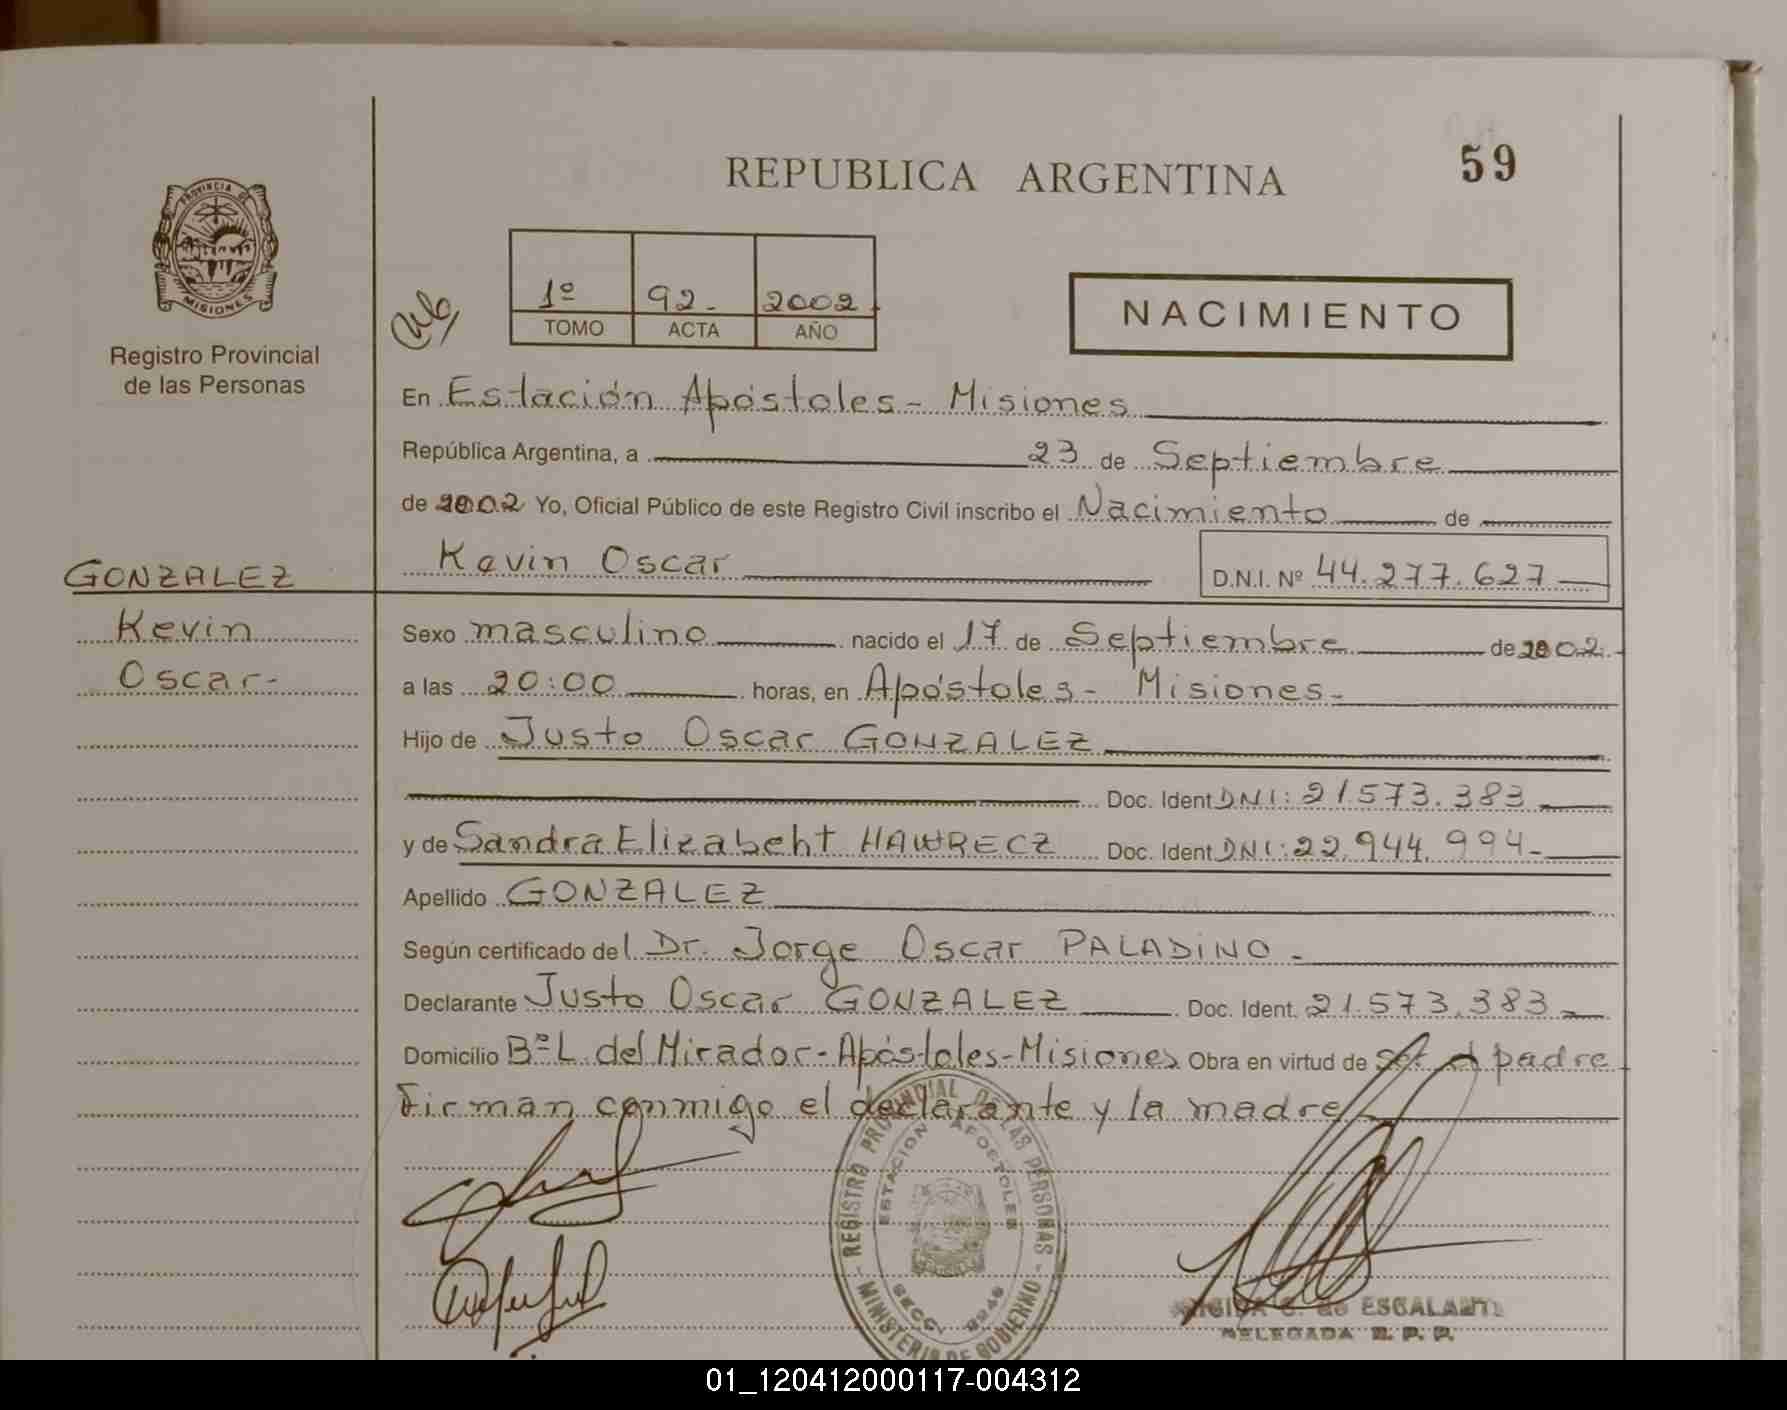 REPUBLICA ARGENTINA
59
PROVINCIA DE
MISIONES
Registro Provincial
de las Personas
1º 92- 2002
TOMO ACTA AÑO
NACIMIENTO
En Estación Apóstoles - Misiones
República Argentina, a 23 de Septiembre
de 2002 Yo, Oficial Público de este Registro Civil inscribo el Nacimiento de
GONZALEZ
Kevin
Oscar-
Kevin Oscar D.N.I. Nº 44.277.627
Sexo masculino nacido el 17 de Septiembre de 2002.
a las 20:00 horas, en Apóstoles - Misiones-
Hijo de Justo Oscar GONZALEZ
Doc. Ident DNI: 21.573.383
y de Sandra Elizabeht HAWRECZ Doc. Ident DNI: 22.944.994-
Apellido GONZALEZ
Según certificado del Dr. Jorge Oscar PALADINO -
Declarante Justo Oscar GONZALEZ Doc. Ident. 21.573.383
Domicilio Bº L. del Mirador - Apóstoles - Misiones Obra en virtud de ser el padre
Firman conmigo el declarante y la madre
- REGISTRO PROVINCIAL DE LAS PERSONAS -
ESTACION APOSTOLES
MINISTERIO DE GOBIERNO
de ESCALANTE
DELEGADA R. P. P.
01_120412000117-004312